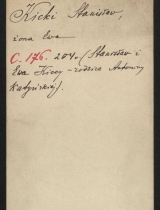 Kicki Stanisław,
żona Ewa
C. 176. 204. (Stanisław i
Ewa Kiccy - rodzice Antoniny